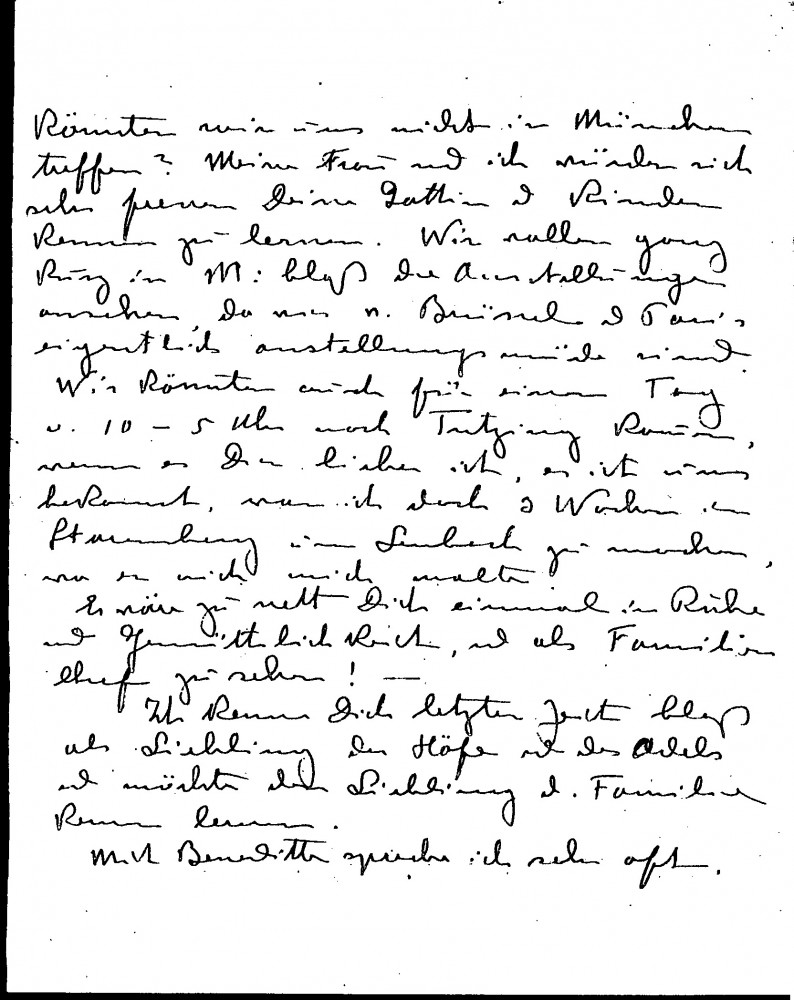 Könnten wir uns nicht in München
treffen? Meine Frau und ich würden sich
sehr freuen Deine Gattin d Kinder
kennen zu lernen. Wir wollen ganz
kurz in M: bloß die Ausstellungen
ansehen, da wir v. Brüssel d Paris
eigentlich ausstellungsmüde sind.
Wir könnten auch für einen Tag
v. 10 – 5 Uhr nach Tutzing kommen,
wenn es Dir lieber ist, es ist uns
bekannt, war ich doch 3 Wochen in
Starnberg um Lenbach zu
wo er mich malte
Es wäre zu nett Dich einmal in Ruhe
und Gemüthlichkeit, und als Familien
chef zu sehen! —
Ich kenne Dich letzter Zeit bloß
als Liebling der Höfe und des Adels
und möchte den Liebling d. Familie
kennen lernen.
Mit spreche ich sehr oft.